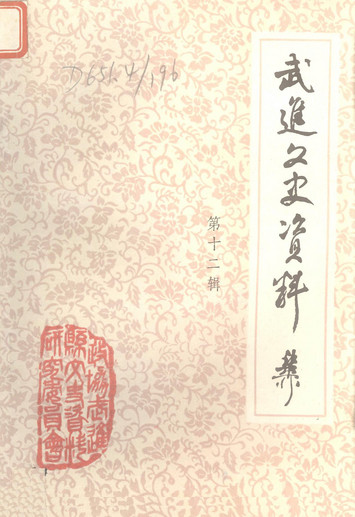 D651.4/196
武進文史资料
第十二辑
政協武進
縣文史資料
研究委員會